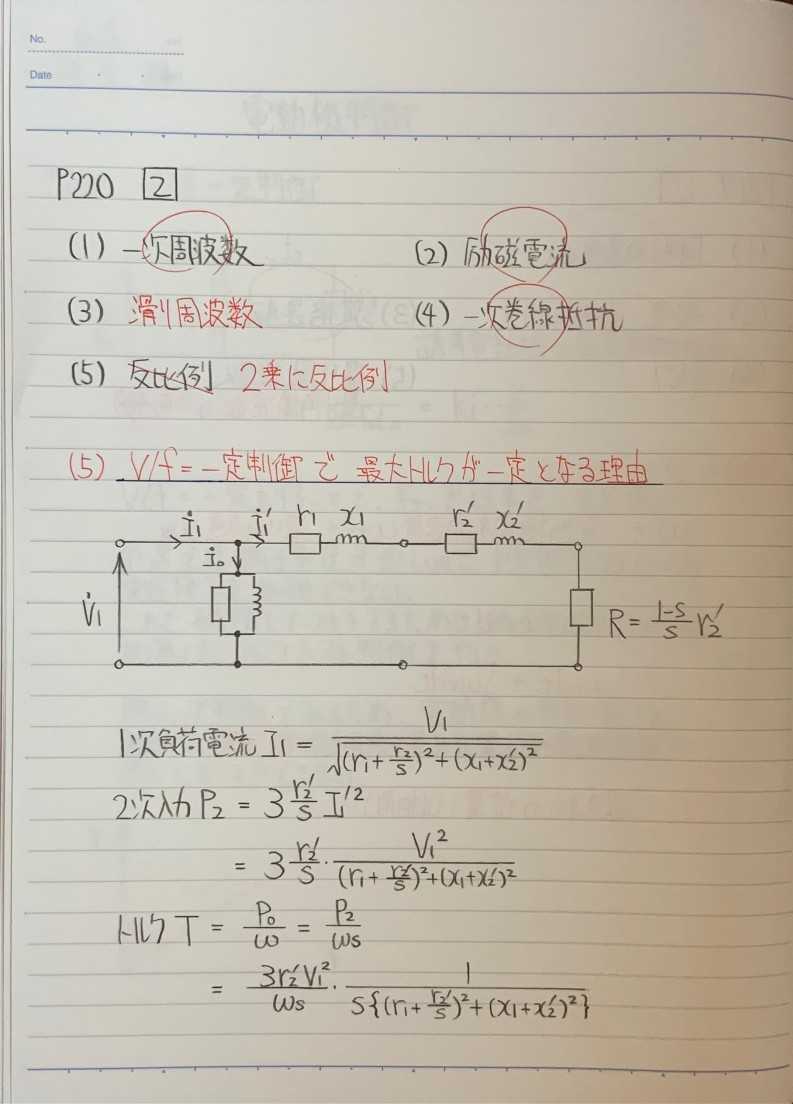 No.
Date
P220 2
(1) 一次周波数 (2) 励磁電流
(3) 滑り周波数 (4) 一次巻線抵抗
(5) 反比例 2乗に反比例
(5) V/f=一定制御で 最大トルクが一定となる理由
İ₁ İ₁′ r₁ x₁ r₂′ x₂′
İ₀
V̇₁
R = (1-s)/s r₂′
1次負荷電流 I₁ = V₁/√((r₁+r₂/s)²+(x₁+x₂′)²)
2次入力 P₂ = 3 r₂′/s I₁′²
= 3 r₂′/s · V₁²/((r₁+r₂′/s)²+(x₁+x₂′)²)
トルク T = P₀/ω = P₂/ωs
= 3r₂′V₁²/ωs · 1/(s{(r₁+r₂′/s)²+(x₁+x₂′)²})